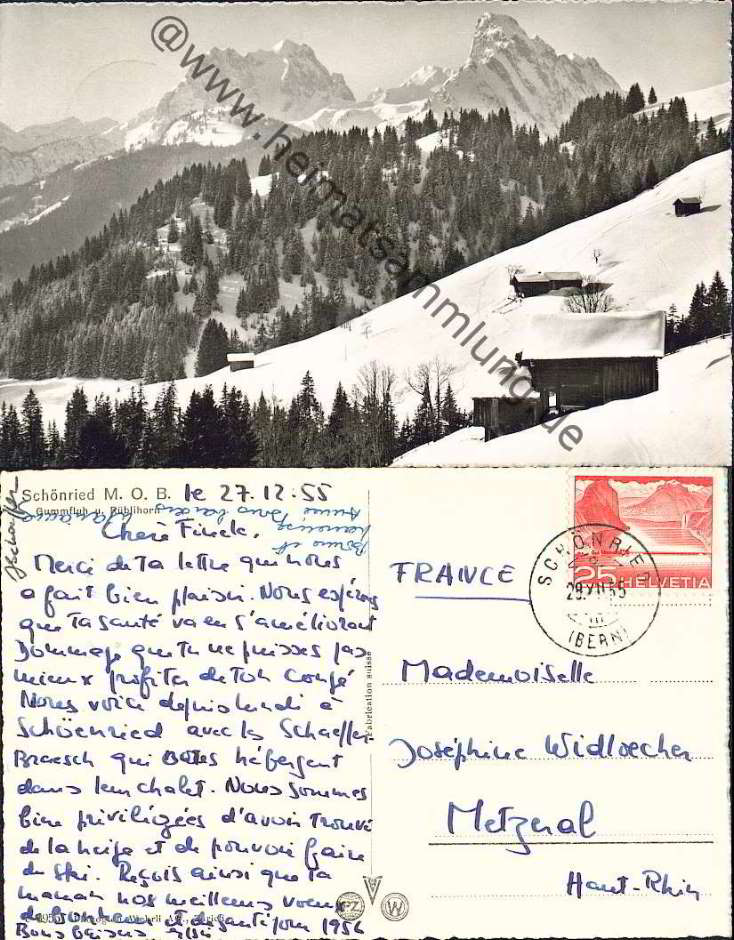 @www.heimatsammlung.de
Schönried M. O. B. le 27.12.55
Gummfluh u. Rüblihorn
Chère Finele,
Merci de ta lettre qui nous
a fait bien plaisir. Nous espérons
que ta santé va en s'améliorant
Dommage que tu ne puisses pas
mieux profiter de ton congé
Nous voici depuis lundi à
Schöenried avec les Schaeffer-
Braesch qui nous hébergent
dans leur chalet. Nous sommes
bien privilégiées d'avoir trouvé
de la neige et de pouvoir faire
du ski. Reçois ainsi que ta
maman nos meilleurs voeux
de bonheur et de santé pour 1956
Bons baisers
Fabrication suisse
SCHÖNRIED
29.XII.55
(BERN)
25 HELVETIA
FRANCE
Mademoiselle
Joséphine Widloecher
Metzeral
Haut-Rhin